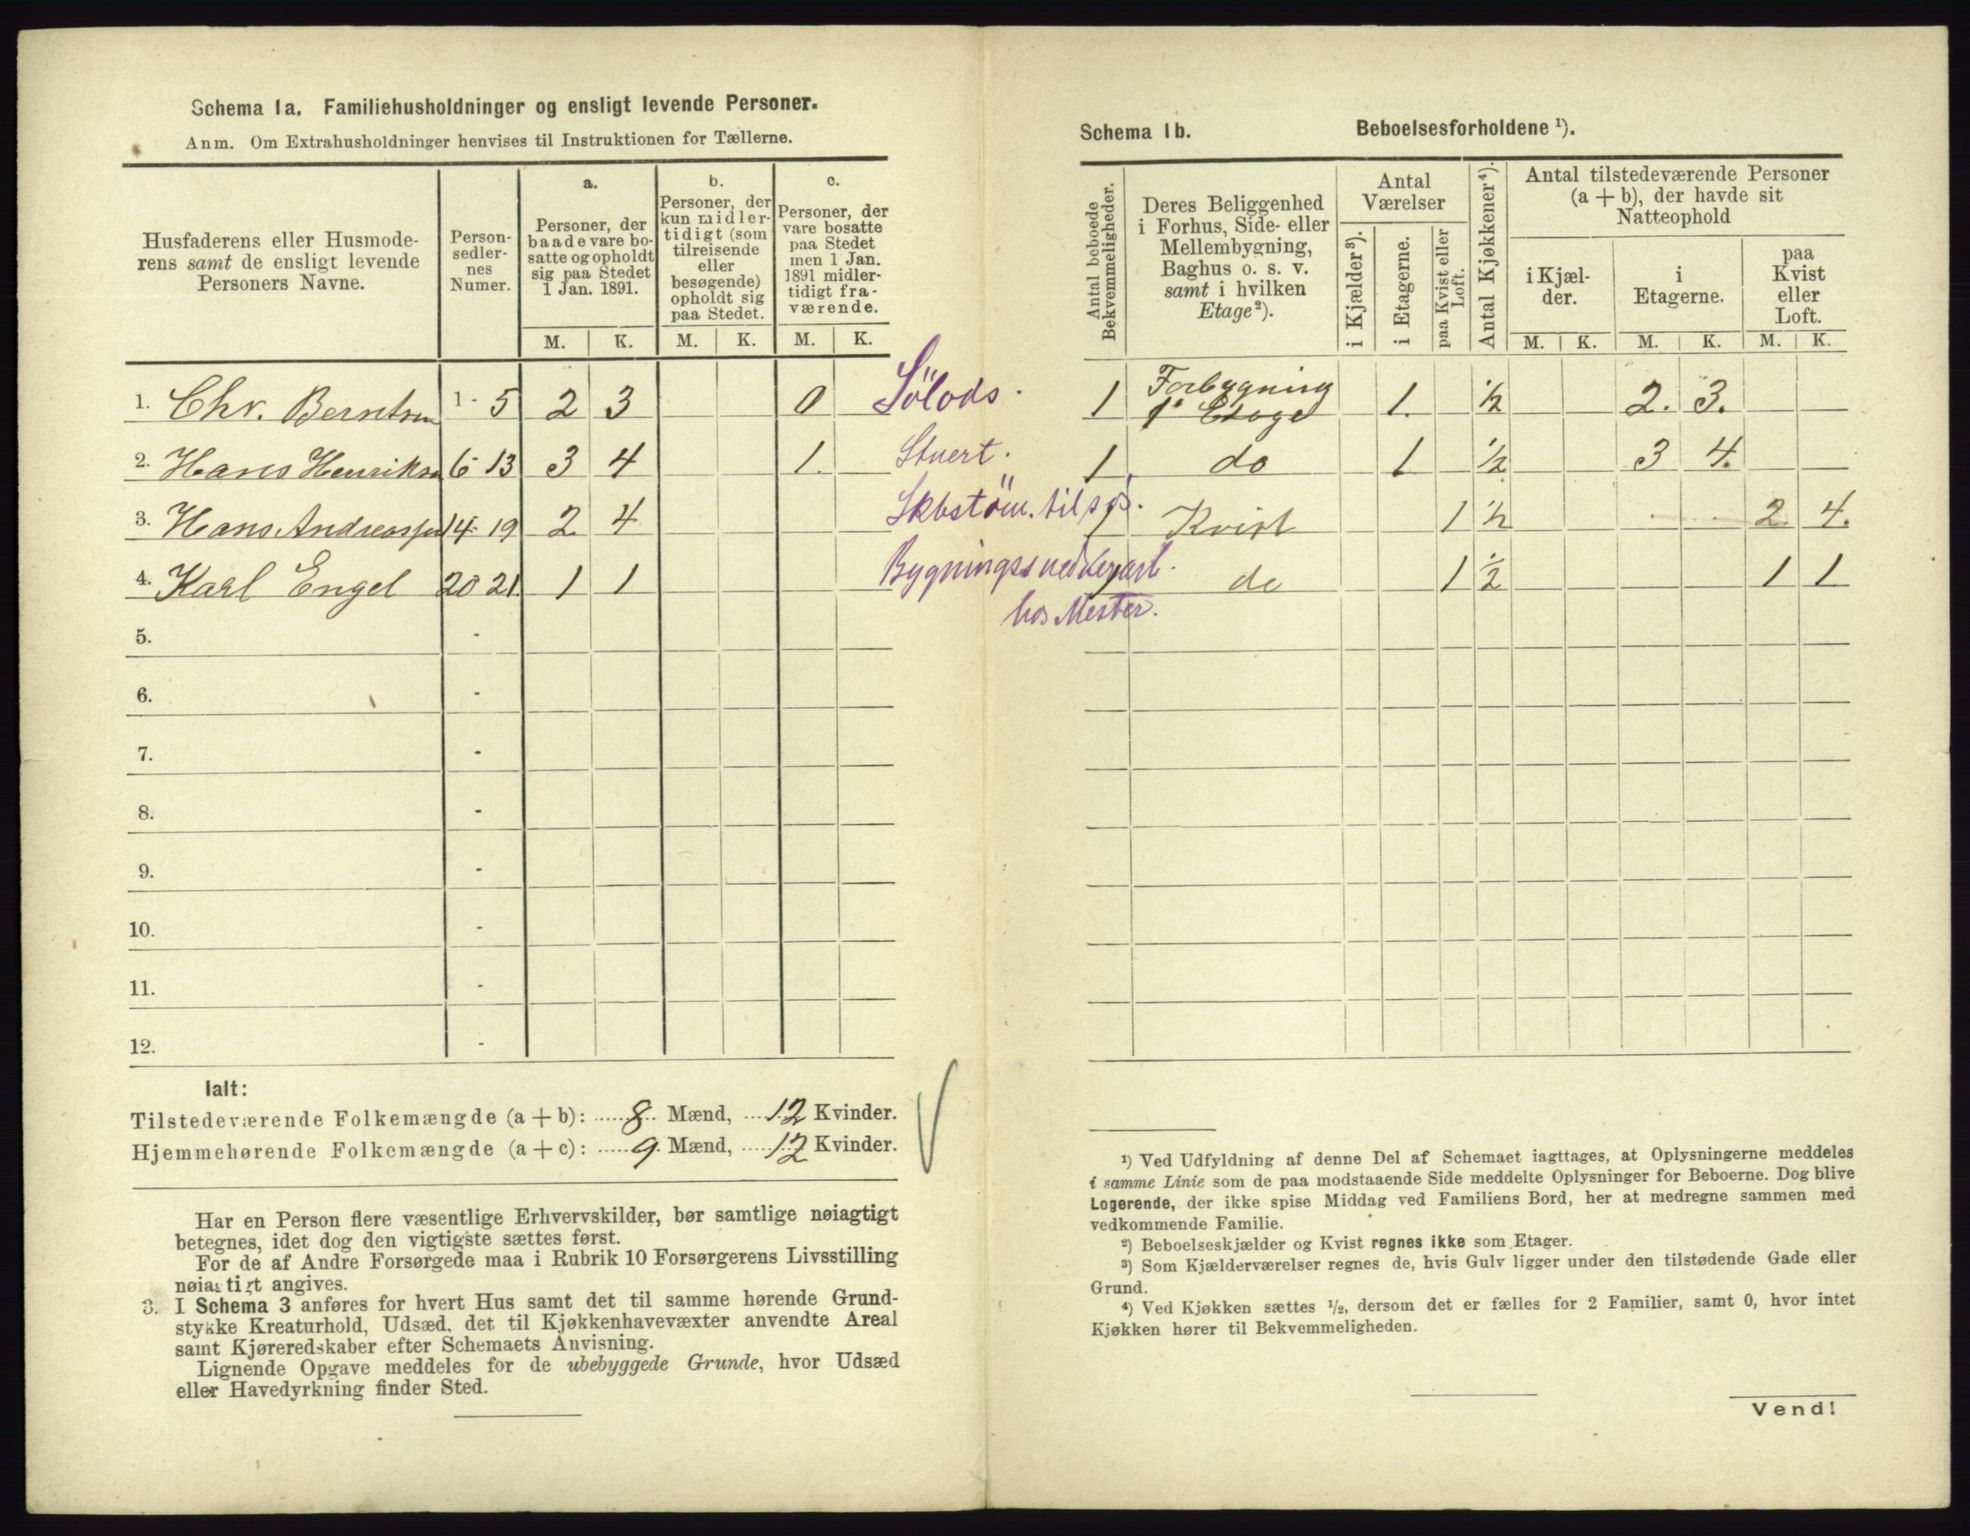 Schema 1a. Familiehusholdninger og ensligt levende Personer.
Anm. Om Extrahusholdninger henvises til Instruktionen for Tællerne.
Husfaderens eller Husmode-
rens samt de ensligt levende
Personers Navne.
Person-
sedler-
nes
Numer.
a.
Personer, der
baade vare bo-
satte og opholdt
sig paa Stedet
1 Jan. 1891.
b.
Personer, der
kun midler-
tidigt (som
tilreisende
eller
besøgende)
opholdt sig
paa Stedet.
c.
Personer, der
vare bosatte
paa Stedet
men 1 Jan.
1891 midler-
tidigt fra-
værende.
M. K. M. K. M. K.
1. Chr. Berntsen 1 - 5 2 3 0 Sölods.
2. Hans Henriksen 6 - 13 3 4 1. Stuert.
3. Hans Andreassen 14 - 19 2 4 Skbstöm. til sös.
4. Karl Engel 20 21 1 1 Bygningssnedkerarb.
hos Mester.
5. -
6. -
7. -
8. -
9. -
10. -
11. -
12. -
Ialt:
Tilstedeværende Folkemængde (a + b): 8 Mænd, 12 Kvinder.
Hjemmehørende Folkemængde (a + c): 9 Mænd, 12 Kvinder.
Har en Person flere væsentlige Erhvervskilder, bør samtlige nøiagtigt
betegnes, idet dog den vigtigste sættes først.
For de af Andre Forsørgede maa i Rubrik 10 Forsørgerens Livsstilling
nøiagtigt angives.
3. I Schema 3 anføres for hvert Hus samt det til samme hørende Grund-
stykke Kreaturhold, Udsæd, det til Kjøkkenhavevæxter anvendte Areal
samt Kjøreredskaber efter Schemaets Anvisning.
Lignende Opgave meddeles for de ubebyggede Grunde, hvor Udsæd
eller Havedyrkning finder Sted.
Schema 1b. Beboelsesforholdene ¹).
Antal beboede
Bekvemmeligheder.
Deres Beliggenhed
i Forhus, Side- eller
Mellembygning,
Baghus o. s. v.
samt i hvilken
Etage ²).
Antal
Værelser
i Kjælder ³).
i Etagerne.
paa Kvist eller
Loft.
Antal Kjøkkener ⁴).
Antal tilstedeværende Personer
(a + b), der havde sit
Natteophold
i Kjæl-
der.
i
Etagerne.
paa
Kvist
eller
Loft.
M. K. M. K. M. K.
1 Forbygning
1ᵉ Etage 1. ½ 2. 3.
1 do 1 ½ 3 4.
1 Kvist 1 ½ 2. 4.
1 do 1 ½ 1 1
¹) Ved Udfyldning af denne Del af Schemaet iagttages, at Oplysningerne meddeles
i samme Linie som de paa modstaaende Side meddelte Oplysninger for Beboerne. Dog blive
Logerende, der ikke spise Middag ved Familiens Bord, her at medregne sammen med
vedkommende Familie.
²) Beboelseskjælder og Kvist regnes ikke som Etager.
³) Som Kjælderværelser regnes de, hvis Gulv ligger under den tilstødende Gade eller
Grund.
⁴) Ved Kjøkken sættes ½, dersom det er fælles for 2 Familier, samt 0, hvor intet
Kjøkken hører til Bekvemmeligheden.
Vend!